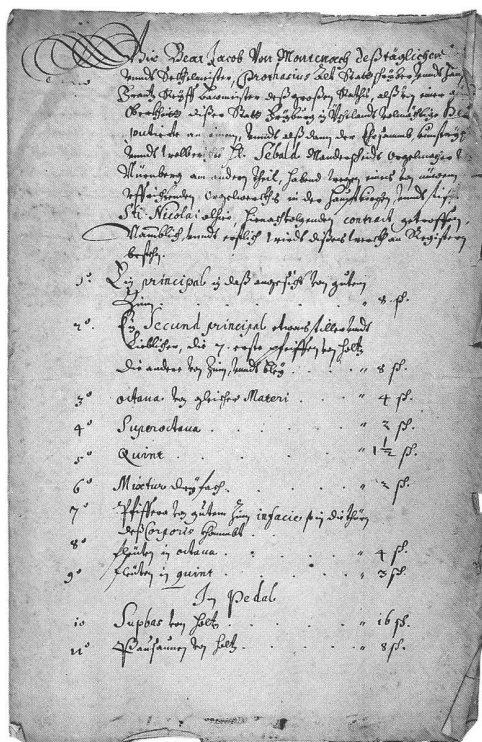 Wir Beat Jacob Von Montenach deß täglichen
unndt Seckelmeister, Prothasius Alt Stattschryber unndt Hanß
Frantz Reyff Bauwmeister deß großen Raths alß von einer
Oberkheitt diser Statt Fryburg in Üchtlandt volmächtige De
putierte an einem, unndt alß dann der
unndt H. Sebald Manderscheidt Orgelmacher
Nürenberg am anderen theil, habend wegen eines von nüwem
Orgelwercks in der Haupttkirchen, unndt stifft
Sti Nicolai alhie, hernachvolgenden contract getroffen,
Namblich, unndt erstlich wird dißes werck an Registern
bestehn.
1° Ein principal in daß angesicht von gutem
Zinn . . . " 8 sch.
2° Ein Secund principal etwas stiller undt
lieblicher, die 7. erste pfeiffen von holtz
die andere von Zinn, unndt bley . . " 8 sch.
3° octava von gleicher Materi . " 4 sch.
4° Superoctava . . . " 2 sch.
5° Quint . . . " 1 1/2 sch.
6° Mixtur dryfach . . . " 2 sch.
7° Pfiffera von gutem Zinn in facie so in die thürn
deß Corporis khommbt
8° fleuten in octava . . " 4 sch.
9° fleuten in quint . . . " 3 sch.
In Pedal
10 Supbas von holtz . . . " 16 sch.
11° Pausaunen von holtz . . . " 8 sch.